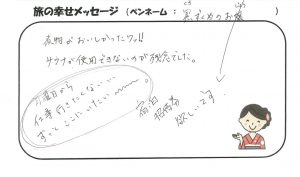 旅の幸せメッセージ（ペンネーム：黒ずくめのお嬢）
夜明がおいしかったワ!!
サウナが使用できないのが残念でした。
月曜日から
仕事行きたくない…
ずっとここにいたい〜〜〜。
宿泊
招待券
欲しいです…